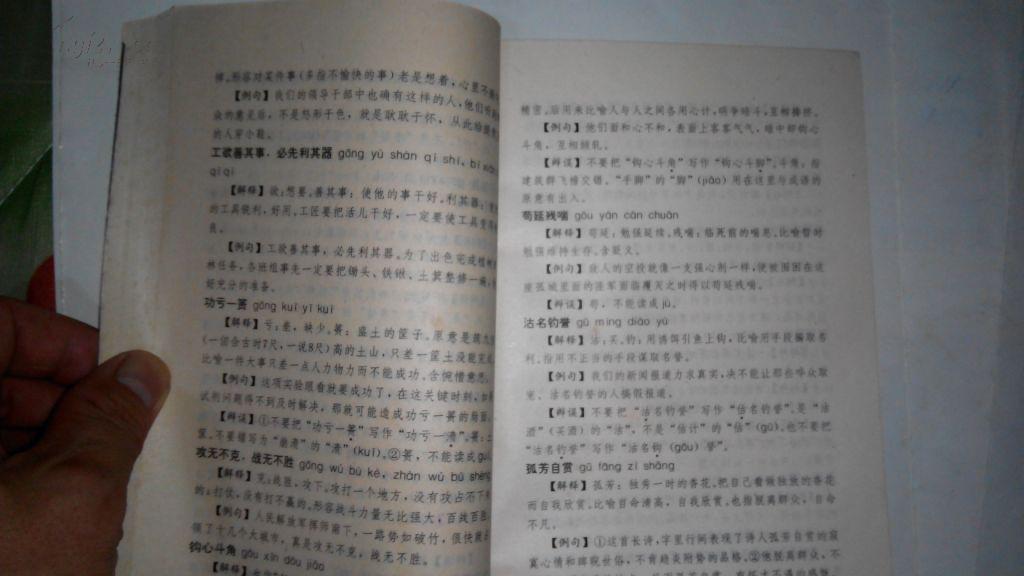 掉。形容对某件事(多指不愉快的事)老是想着,心里不
【例句】我们的领导干部中也确有这样的人,他们听到
众的意见后,不是怒形于色,就是耿耿于怀,从此给提意
的人穿小鞋。
工欲善其事,必先利其器 gōng yù shàn qí shì, bì xiān
qí qì
【解释】欲:想要。善其事:使他的事干好。利其器:
的工具锐利,好用。工匠要把活儿干好,一定要使工具变得
良。
【例句】工欲善其事,必先利其器。为了出色完成植树
林任务,各班组事先一定要把锄头、铁锹、土箕整修一遍,
好充分的准备。
功亏一篑 gōng kuī yī kuì
【解释】亏:差,缺少。篑:盛土的筐子。原意是栽九
(一仞合古时7尺,一说8尺)高的土山,只差一筐土没能完成
比喻一件大事只差一点人力物力而不能成功。含惋惜意思。
【例句】这项实验眼看就要成功了,在这关键时刻,如果
试剂问题得不到及时解决,那就可能造成功亏一篑的局面。
【辨误】①不要把“功亏一篑”写作“功亏一溃”。篑:
筐。不要错写为“崩溃”的“溃”(kuì)。②篑,不能读成guì。
攻无不克,战无不胜 gōng wú bù kè, zhàn wú bù shèng
【解释】克:战胜,攻下。攻打一个地方,没有攻占不下来
的;打仗,没有打不赢的。形容战斗力量无比强大,百战百胜。
【例句】人民解放军挥师南下,一路势如破竹,很快就占
领了十几个大城市,真是攻无不克,战无不胜。
钩心斗角 gōu xīn dòu jiǎo
【解释】
精密。后用来比喻人与人之间各用心计,明争暗斗,互相排挤。
【例句】他们面和心不和,表面上客客气气,暗中却钩心
斗角,互相倾轧。
【辨误】不要把“钩心斗角”写作“钩心斗脚”。斗角:指
建筑群飞檐交错。“手脚”的“脚”(jiǎo)用在这里与成语的
原意有出入。
苟延残喘 gǒu yán cán chuǎn
【解释】苟延:勉强延续。残喘:临死前的喘息。比喻暂时
勉强维持生存。含贬义。
【例句】敌人的空投就像一支强心剂一样,使被围困在这
座孤城里面的蒋军面临覆灭之时得以苟延残喘。
【辨误】苟,不能读成jù。
沽名钓誉 gū míng diào yù
【解释】沽:买。钓:用诱饵引鱼上钩,比喻用手段骗取名
利。指用不正当的手段谋取名誉。
【例句】我们的新闻报道力求真实,决不能让那些哗众取
宠、沽名钓誉的人搞假报道。
【辨误】不要把“沽名钓誉”写作“估名钓誉”。是“沽
酒”(买酒)的“沽”,不是“估计”的“估”(gū)。也不要把
“沽名钓誉”写作“沽名钩(gōu)誉”。
孤芳自赏 gū fāng zì shǎng
【解释】孤芳:独秀一时的香花。把自己看做独放的香花
而自我欣赏。比喻自命清高,自我欣赏。也指脱离群众,自命
不凡。
【例句】①这首长诗,字里行间表现了诗人孤芳自赏的寂
寞心情和睥睨世俗,不肯趋炎附势的品格。②他脱离群众,不